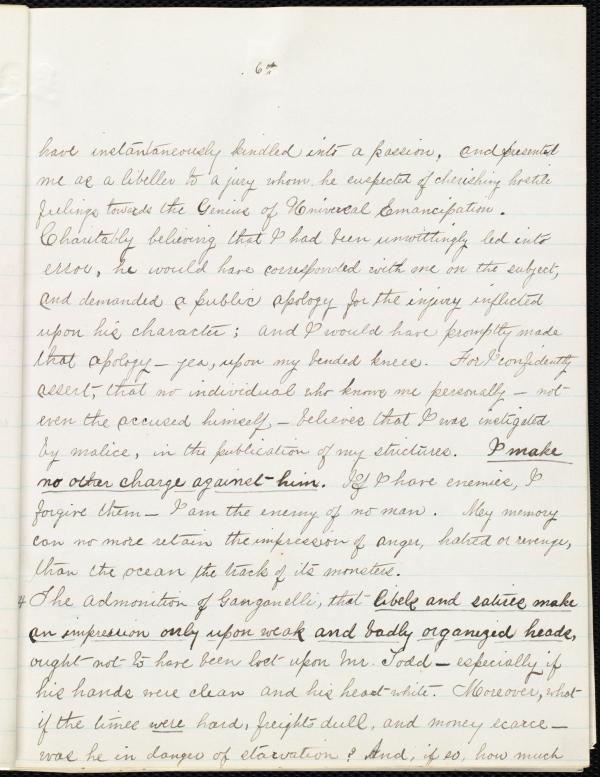 6th
have instantaneously kindled into a passion, and presented
me as a libeller to a jury whom he suspected of cherishing hostile
feelings towards the Genius of Universal Emancipation.
Charitably believing that I had been unwittingly led into
error, he would have corresponded with me on the subject,
and demanded a public apology for the injury inflicted
upon his character; and I would have promptly made
that apology — yea, upon my bended knees. For I confidently
assert, that no individual who knows me personally — not
even the accused himself, — believes that I was instigated
by malice, in the publication of my strictures. I make
no other charge against him. If I have enemies, I
forgive them — I am the enemy of no man. My memory
can no more retain the impression of anger, hatred or revenge,
than the ocean the track of its monsters.
4 The admonition of Ganganelli, that libels and satires make
an impression only upon weak and badly organized heads,
ought not to have been lost upon Mr. Todd — especially if
his hands were clean and his heart white. Moreover, what
if the times were hard, freights dull, and money scarce —
was he in danger of starvation? And, if so, how much